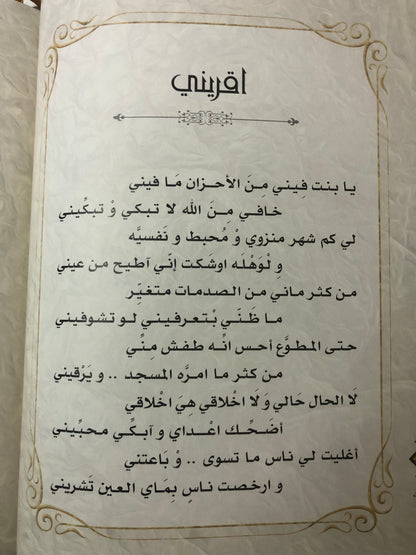 اقريني
يا بنت فِيني مِنَ الأحزان مَا فيني
خافي مِنَ الله لا تبكي وْ تبكِّيني
لي كم شهر منزوي وْ مُحبط و نَفسيَّه
و لْوَهْلَه اوشكت إنّي آطيح من عيني
من كثر ماني من الصدمات متغيِّر
ما ظَنّي بْتعرفيني لو تشوفيني
حتى المطوَّع أحس انَّه طفش مِنِّي
من كثر ما امرَّه المسجد .. و يَرْقيني
لَا الحال حَالي وَ لَا اخْلاقي هِيَ اخْلاقي
أضَحِّك اعْداي و آبكِّي محبِّيني
أغليت لي ناس ما تسوى .. وْ بَاعتني
و ارخصت ناسٍ بِمَاي العين تَشريني